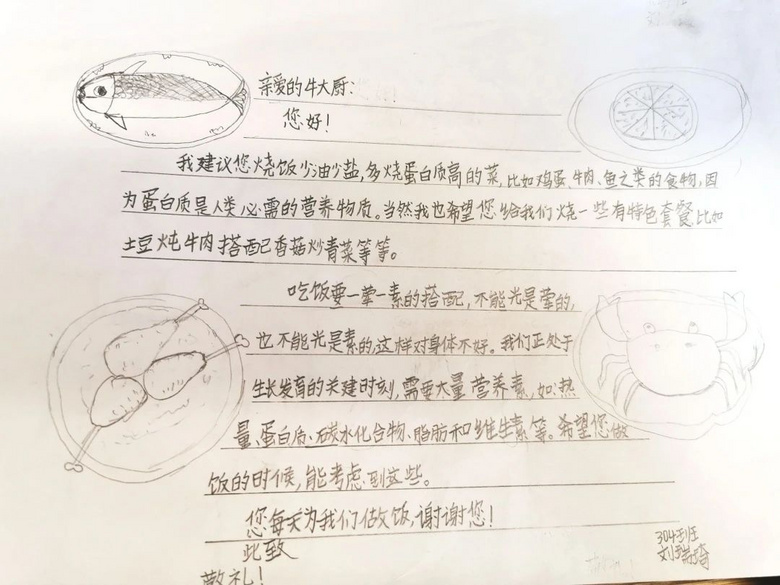 亲爱的牛大厨:
您好!
我建议您烧饭少油少盐,多烧蛋白质高的菜,比如鸡蛋、牛肉、鱼之类的食物,因
为蛋白质是人类必需的营养物质。当然我也希望您给我们烧一些有特色套餐,比如
土豆炖牛肉搭配香菇炒青菜等等。
吃饭要一荤一素的搭配,不能光是荤的,
也不能光是素的,这样对身体不好。我们正处于
生长发育的关建时刻,需要大量营养素,如:热
量、蛋白质、碳水化合物、脂肪和维生素等。希望您做
饭的时候,能考虑到这些。
您每天为我们做饭,谢谢您!
此致
敬礼!
304班
刘瑞琦